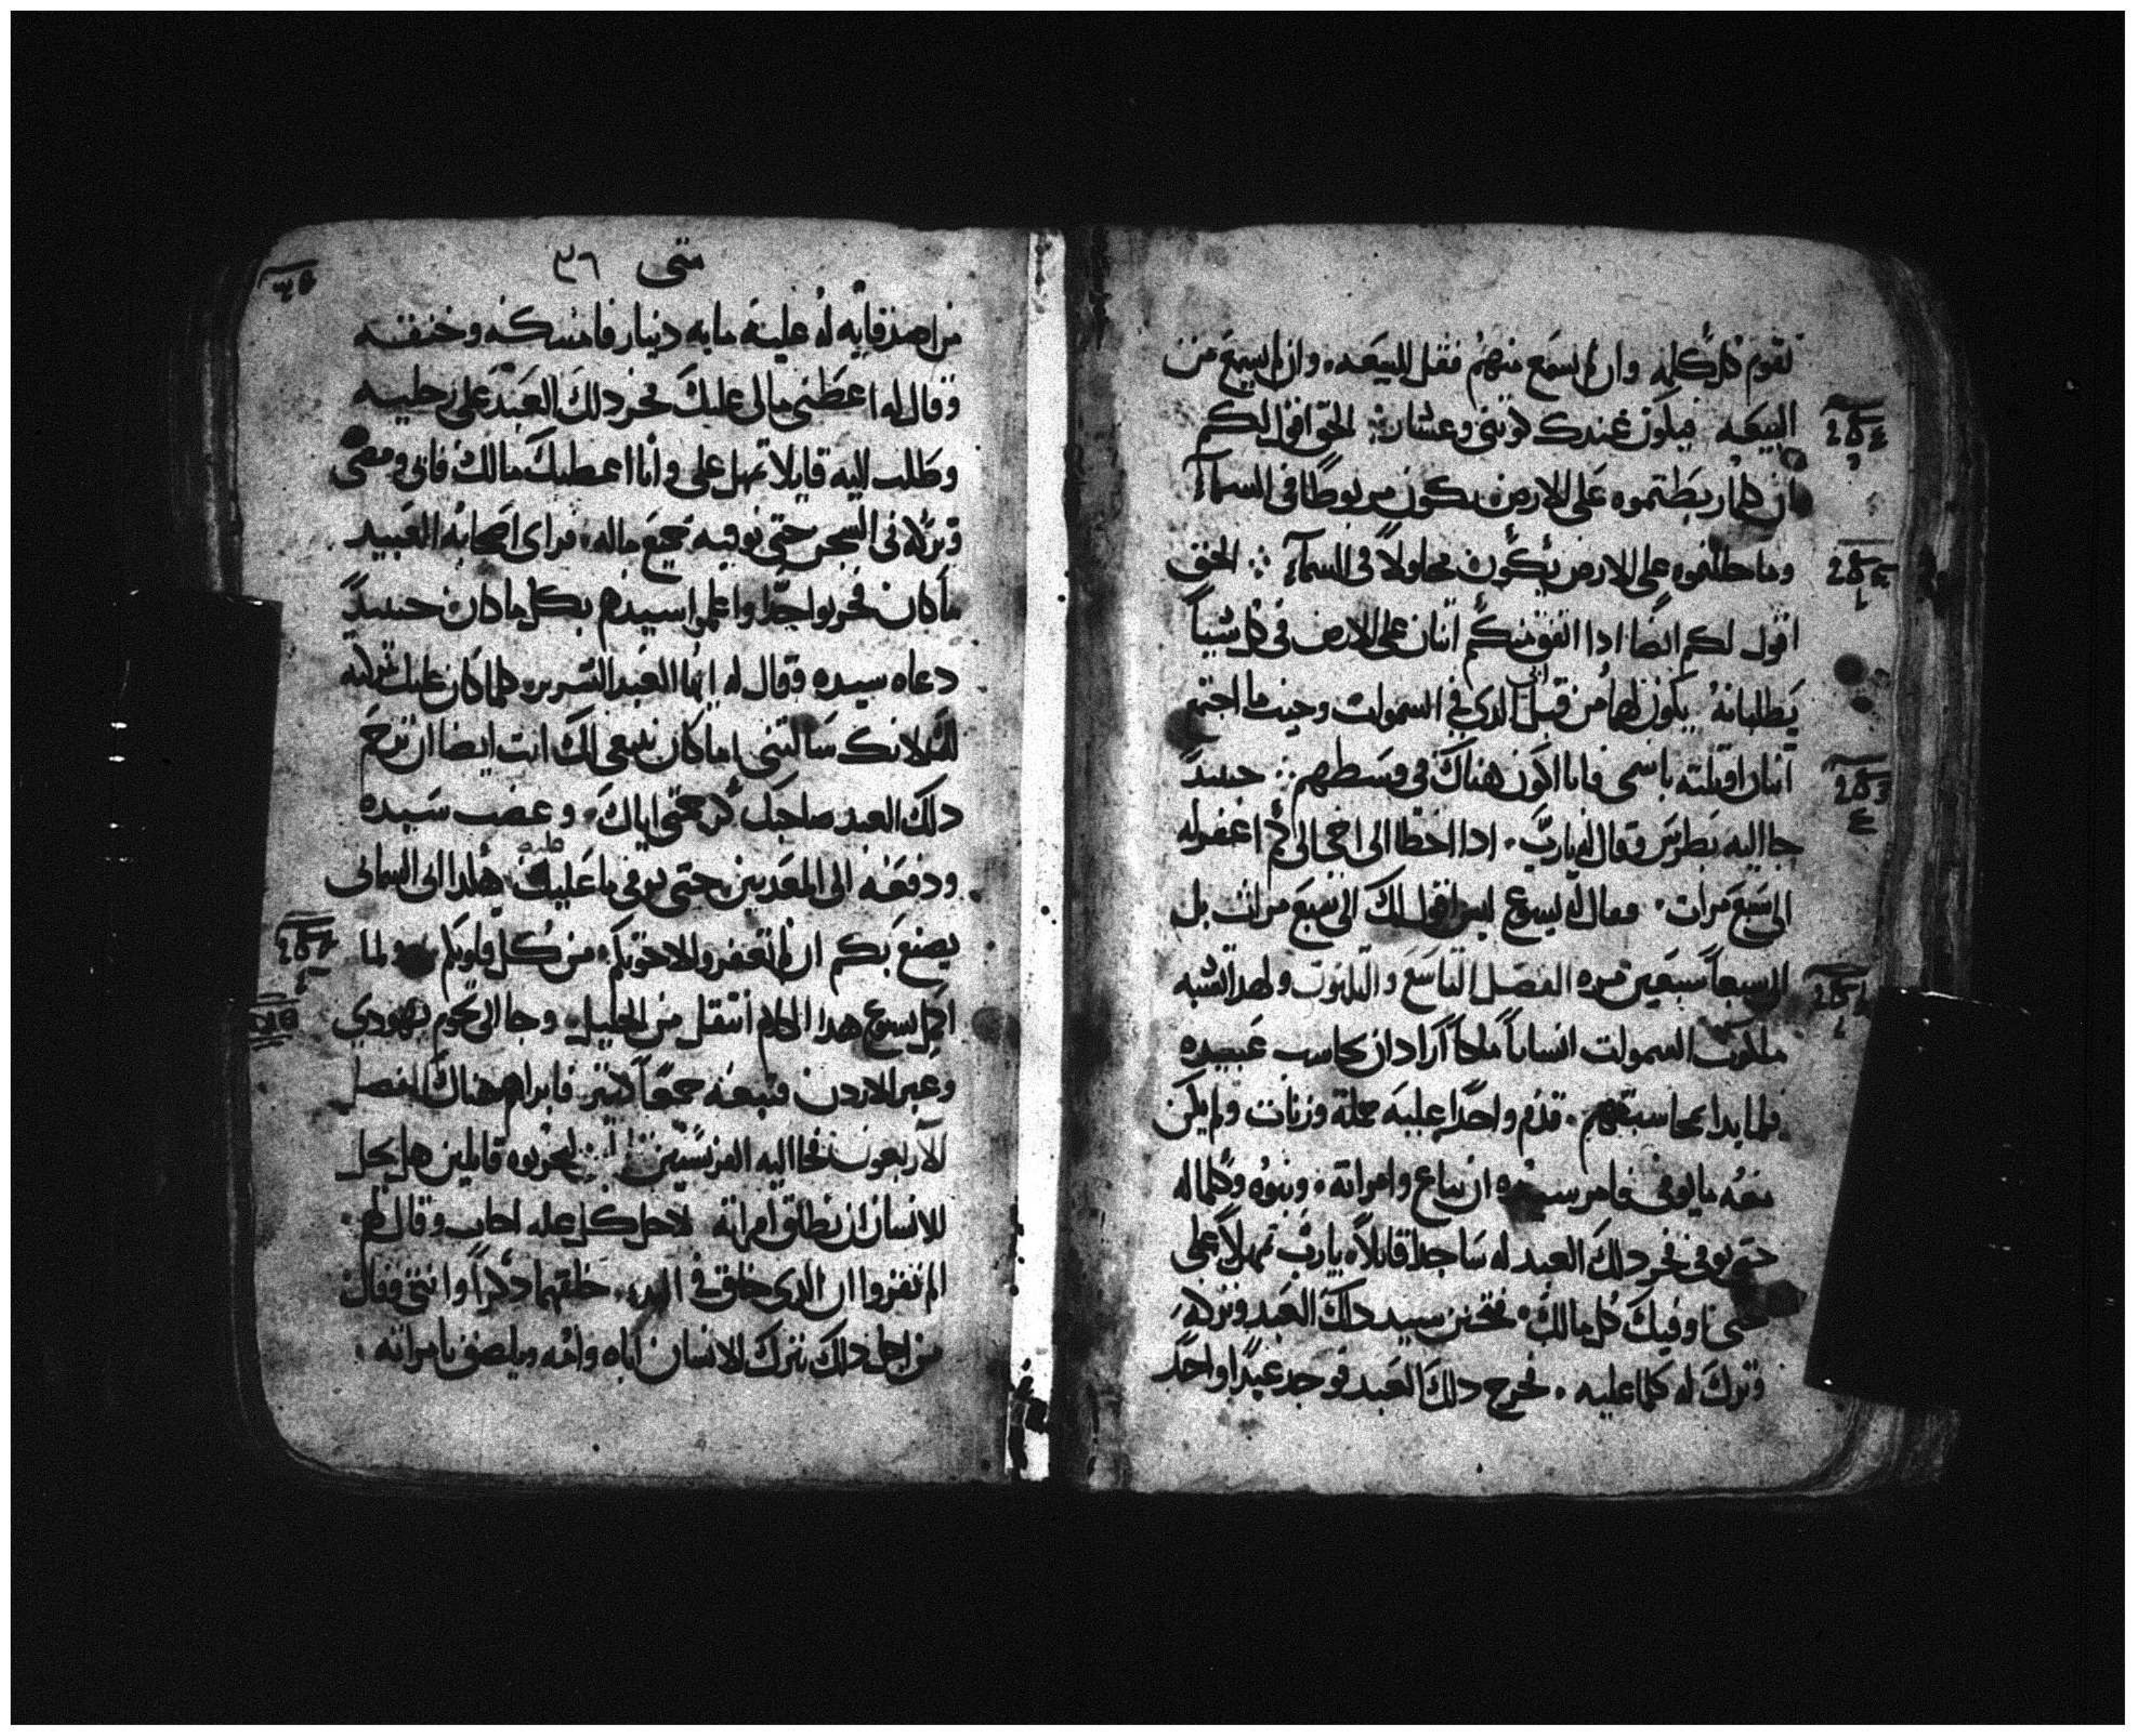 تقوم كل كلمه وان لم يسمع منهم فقل للبيعه. وان لم يسمع من
البيعه فيكون عندك كوثني وعشار: الحق اقول لكم
ان كلما ربطتموه على الارض يكون مربوطا في السمآء
وما حللتموه على الارض يكون محلولاً في السمآء ∴ الحق
اقول لكم ايضا ادا اتفق منكم اتنان على الارض في كل شيياً
يطلبانه يكون لهما من قبل ابي الدي في السموات وحيث ما اجتمع
اتنان او تلته باسمي فانا اكون هناك في وسطهم ∴ حينيدً
جا اليه بطرس وقال له يارب. ادا اخطا الي اخي الى كم اغفر له
الى سبع مرات. فقال له يسوع ليس اقول لك الى سبع مرات بل
الى سبعاً سبعين مره الفصل التاسع والتلتون ولهدا تشبه
ملكوت السموات انساناً ملكاً اراد ان يحاسب عبيده
فلما بدا بمحاسبتهم. قدم واحداً عليه جملة وزنات ولم يكن
معه ما يوفي فامر سيده ان يباع وامراته. وبنوه وكلما له
حتى يوفي فخر دلك العبد له ساجدا قايلاً. يارب تمهلاً علي
حتى اوفيك كل مالك. فتحنن سيد دلك العبد وتركه
وترك له كلما عليه. فخرج دلك العبد فوجد عبداً واحدً
متى ٣٦
من اصدقايه له عليه مايه دينار فامسكه وخنقه
وقال له اعطني مالي عليك فخر دلك العبد على رجليه
وطلب اليه قايلا تمهل علي وانا اعطيك مالك فابى ومضى
وتركه في السجن حتى يوفيه جميع ماله. فراى اصحابه العبيد
ما كان فحزنوا جداً واعلموا سيدهم بكل ما كان حينيدً
دعاه سيده وقال له ايها العبد الشرير. كلما كان عليك تركته
لك لانك سالتني اما كان ينبغي لك انت ايضا ان ترحم
دلك العبد صاحبك كرحمتي اياك. وغضب سيده
ودفعه الى المعدبين حتى يوفي ما عليه هكدا ابي السماني
يصنع بكم ان لم تغفروا لاخوتكم من كل قلوبكم. ولما
اكمل يسوع هدا الكلام انتقل من الجليل. وجا الى تخوم يهودي
وعبر الاردن فتبعه جمعاً كتير. فابراهم هناك الفصل
الاربعون فجا اليه الفريسيين ليجربوه قايلين هل يحل
للانسان ان يطلق امراته لاجل كل عله اجاب وقال لهم.
الم تقروا ان الدي خلق في البدء. خلقهما دكراً وانثى وقال
من اجل دلك يترك الانسان اباه وامه ويلصق بامراته.